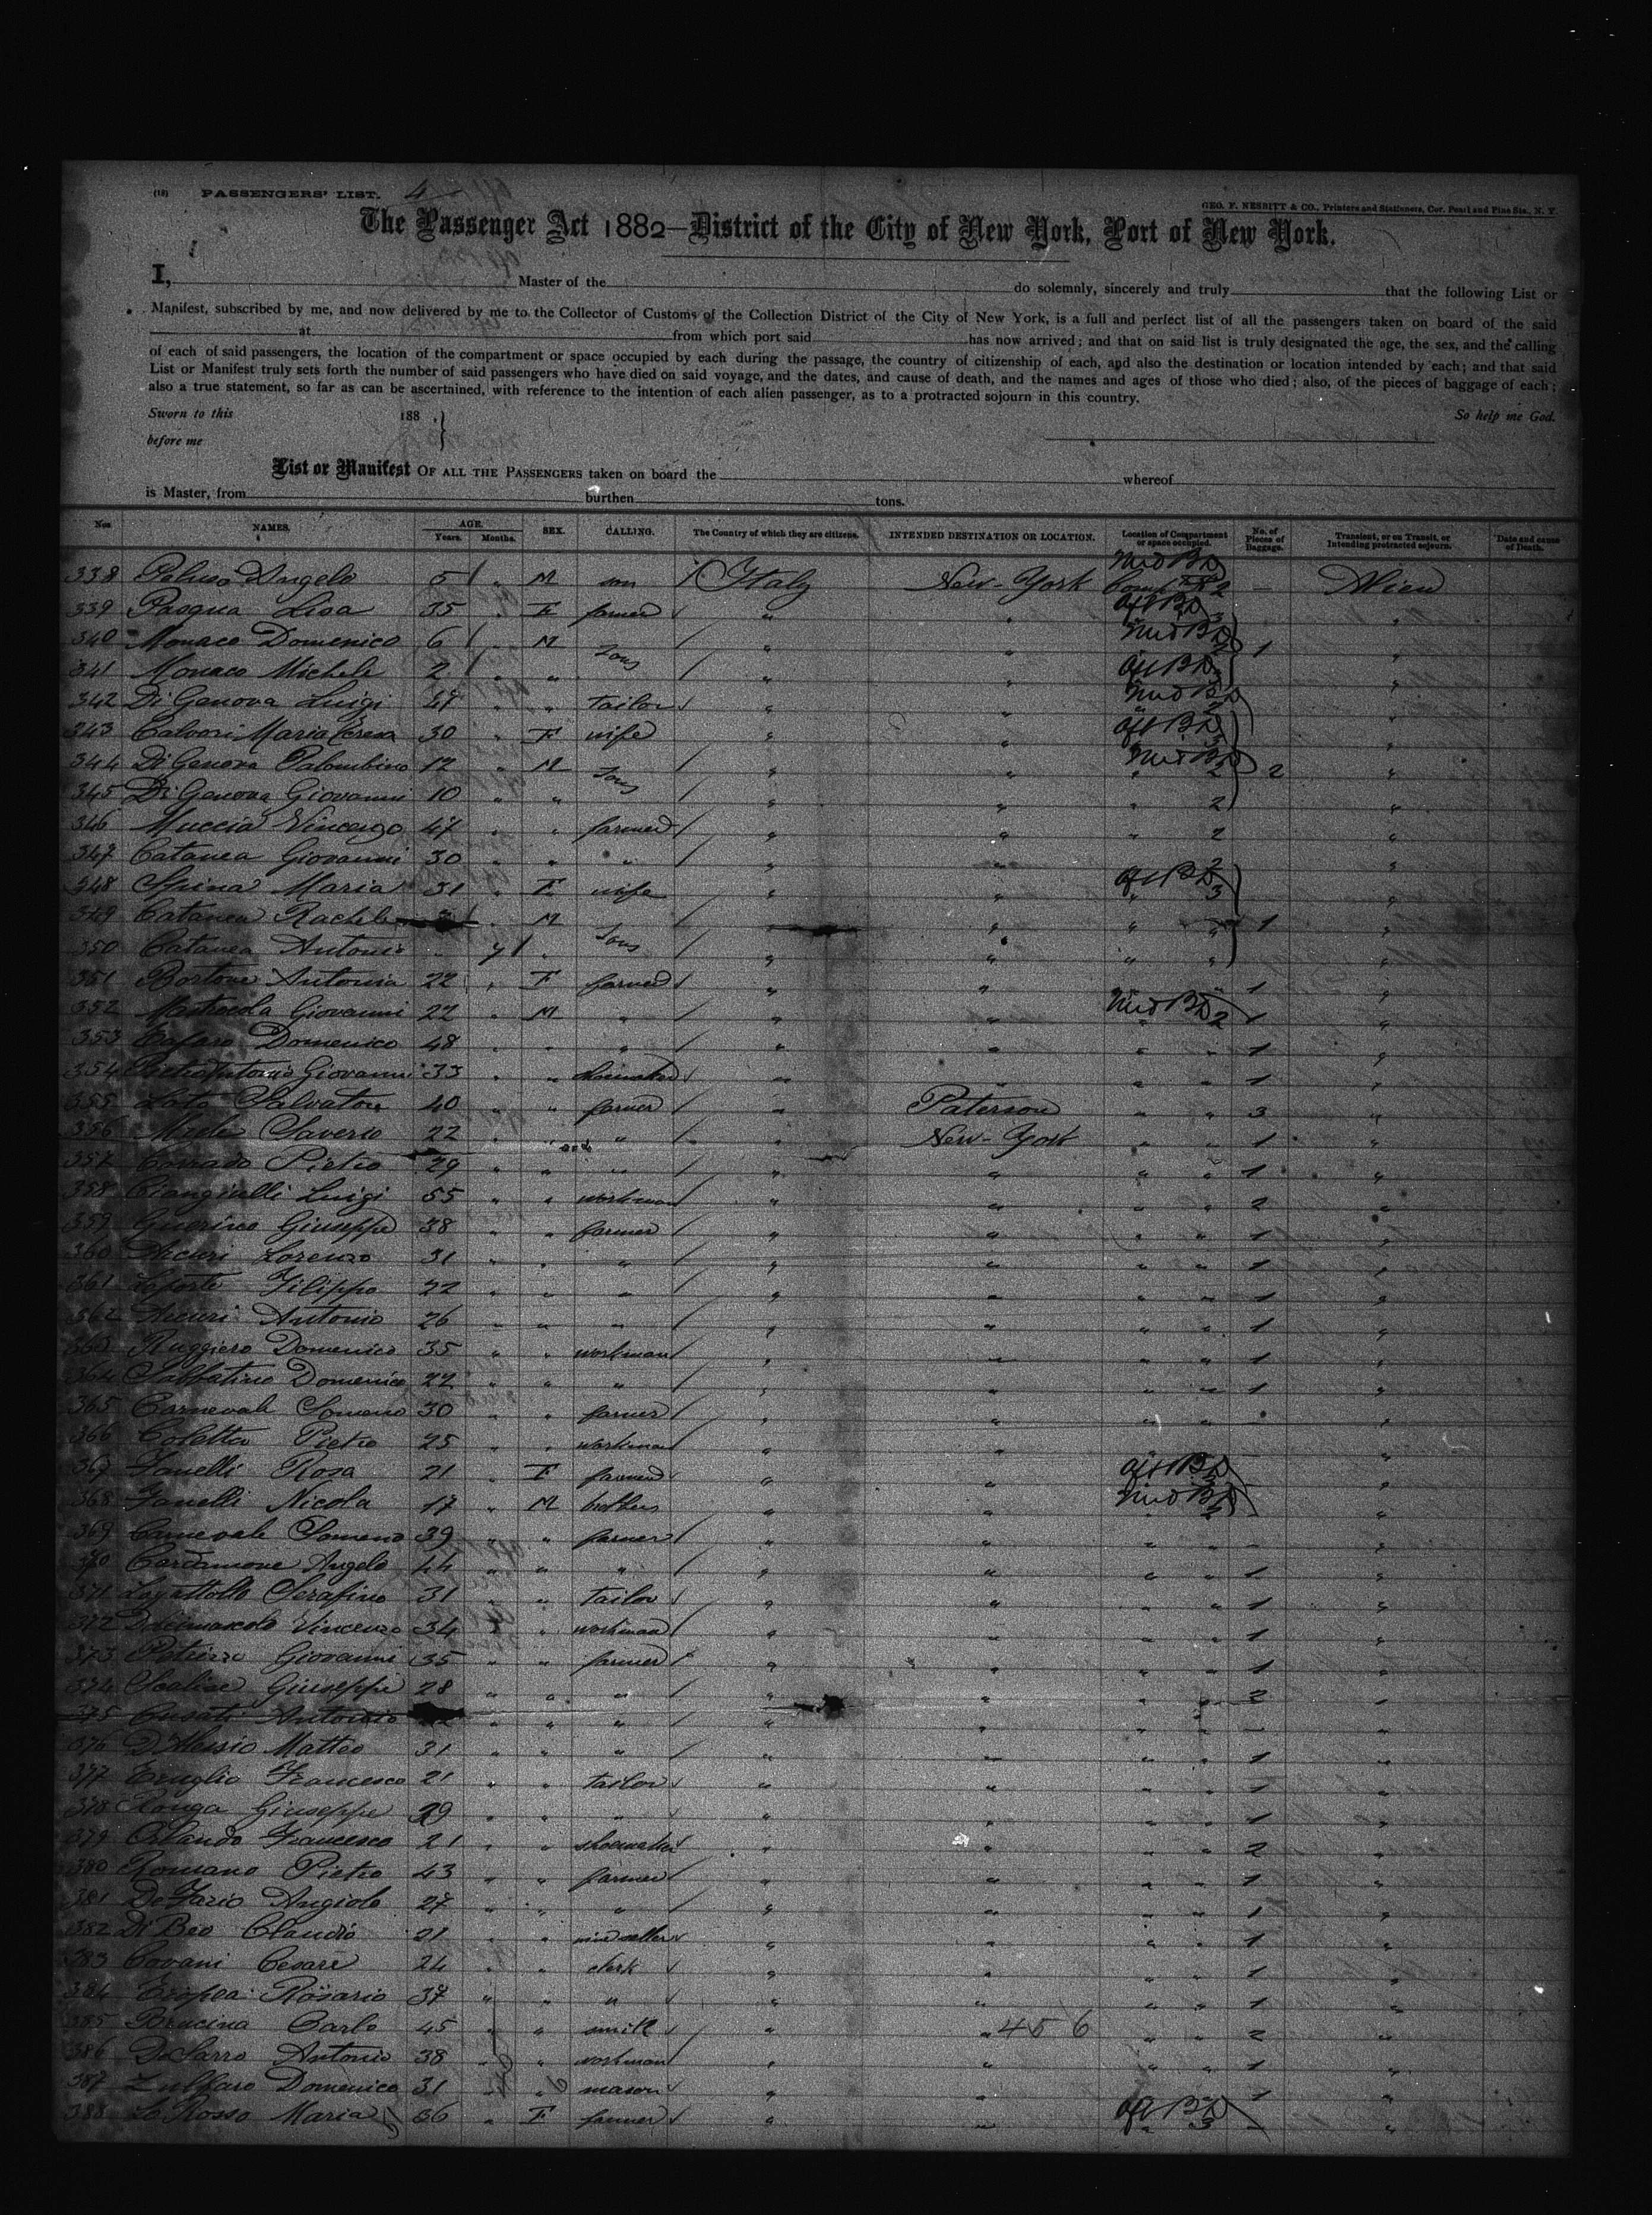 (18) PASSENGERS' LIST. 4
GEO. F. NESBITT & CO., Printers and Stationers, Cor. Pearl and Pine Sts., N. Y.
The Passenger Act 1882—District of the City of New York, Port of New York.
I, Master of the do solemnly, sincerely and truly that the following List or
Manifest, subscribed by me, and now delivered by me to the Collector of Customs of the Collection District of the City of New York, is a full and perfect list of all the passengers taken on board of the said
at from which port said has now arrived; and that on said list is truly designated the age, the sex, and the calling
of each of said passengers, the location of the compartment or space occupied by each during the passage, the country of citizenship of each, and also the destination or location intended by each; and that said
List or Manifest truly sets forth the number of said passengers who have died on said voyage, and the dates, and cause of death, and the names and ages of those who died; also, of the pieces of baggage of each;
also a true statement, so far as can be ascertained, with reference to the intention of each alien passenger, as to a protracted sojourn in this country.
Sworn to this 188 . } So help me God.
before me
List or Manifest OF ALL THE PASSENGERS taken on board the whereof
is Master, from burthen tons.
Nos NAMES. AGE. Years. Months. SEX. CALLING. The Country of which they are citizens. INTENDED DESTINATION OR LOCATION. Location of Compartment or space occupied. No. of Pieces of Baggage. Transient, or on Transit, or Intending protracted sojourn. Date and cause of Death.
338 Peluso Angelo 5 " M son Italy New-York Mid BD 2 — Alien
339 Pasqua Lisa 35 " F farmer " " Aft BD 3 "
340 Monaco Domenico 6 " M sons " " Mid BD 2 1 "
341 Monaco Michele 2 " " " " Aft BD 3 "
342 Di Genova Luigi 47 " " tailor " " Mid BD 2 "
343 Calvori Maria Teresa 30 " F wife " " Aft BD 3 "
344 Di Genova Palombino 12 " M sons " " Mid BD 2 2 "
345 Di Genova Giovanni 10 " " " " " 2 "
346 Muccia Vincenzo 47 " " farmer " " " 2 "
347 Catanea Giovanni 30 " " " " " " 2 "
348 Spina Maria 31 " F wife " " Aft BD 3 "
349 Catanea Rachele " M " " " 1 "
350 Catanea Antonio " 7 " sons " " " " "
351 Bortone Antonia 22 " F farmer " " " 1 "
352 Mastrocola Giovanni 22 " M " " " Mid BD 2 1 "
353 Cafaro Domenico 48 " " " " " " " 1 "
354 Pietrantonio Giovanni 33 " " " " " " 1 "
355 Loto Salvatore 40 " " farmer " Paterson " " 3 "
356 Mele Saverio 22 " " " " New-York " " 1 "
357 Corrado Pietro 29 " " " " " " " 1 "
358 Ciangiulli Luigi 55 " " workman " " " " 2 "
359 Guerico Giuseppe 38 " " farmer " " " " 1 "
360 Arcuri Lorenzo 31 " " " " " " " 1 "
361 Filippo 22 " " " " " " " 1 "
362 Arcuri Antonio 26 " " " " " " " 1 "
363 Ruggiero Domenico 35 " " workman " " " " 1 "
364 Sabbatino Domenico 22 " " " " " " " 1 "
365 Carnevale Someno 30 " " farmer " " " " "
366 Coletta Pietro 25 " " workman " " "
367 Fanelli Rosa 21 " F farmer " " Aft BD 3 "
368 Fanelli Nicola 17 " M brother " " Mid BD 2 "
369 Carnevale Someno 39 " " farmer " " " " - "
370 Cardamone Angelo 44 " " " " " " " 1 "
371 Logattollo Serafino 31 " " tailor " " " " 1 "
372 Vincenzo 34 " " workman " " " " 1 "
373 Petrizzi Giovanni 35 " " farmer " " " " 1 "
374 Scalise Giuseppe 28 " " " " " " " 2 "
375 Cusati Antonio " " " " " " " - "
376 D'Alessio Matteo 31 " " " " " " " 1 "
377 Eruglio Francesco 21 " " tailor " " " " 1 "
378 Ronga Giuseppe 39 " " " " " " " 1 "
379 Orlando Francesco 21 " " shoemaker " " " " 2 "
380 Romano Pietro 43 " " farmer " " " " 1 "
381 De Fazio Angiolo 27 " " " " " " " 1 "
382 Di Beo Claudio 21 " " wine seller " " " " 1 "
383 Covani Cesare 24 " " clerk " " " " 1 "
384 Eropea Rosario 37 " " " " " " " 1 "
385 Brucina Carlo 45 " " smith " " 456 " " 2 "
386 De Sarro Antonio 38 " " workman " " " " 1 "
387 Zulffaro Domenico 31 " " mason " " " " 1 "
388 Lo Rosso Maria 36 " F farmer " " Aft BD 3 - "